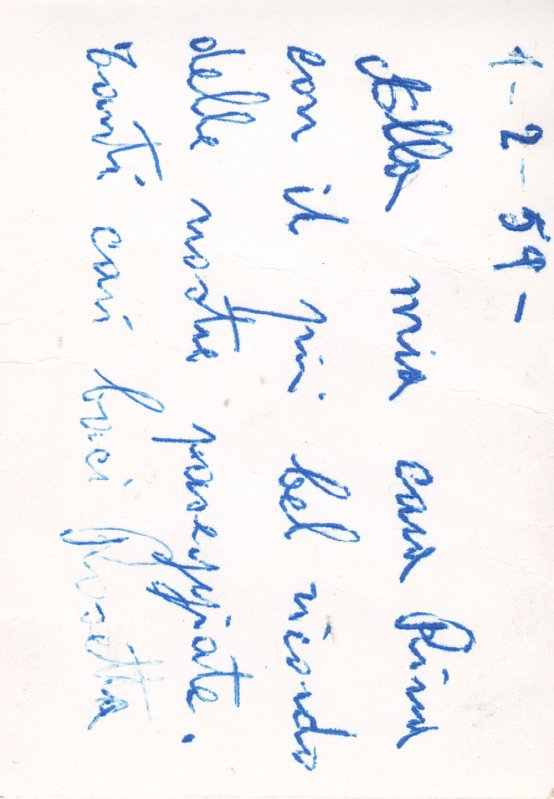 1-2-59-
Alla mia cara Rina
con il più bel ricordo
delle nostre passeggiate.
Tanti cari baci Rosetta